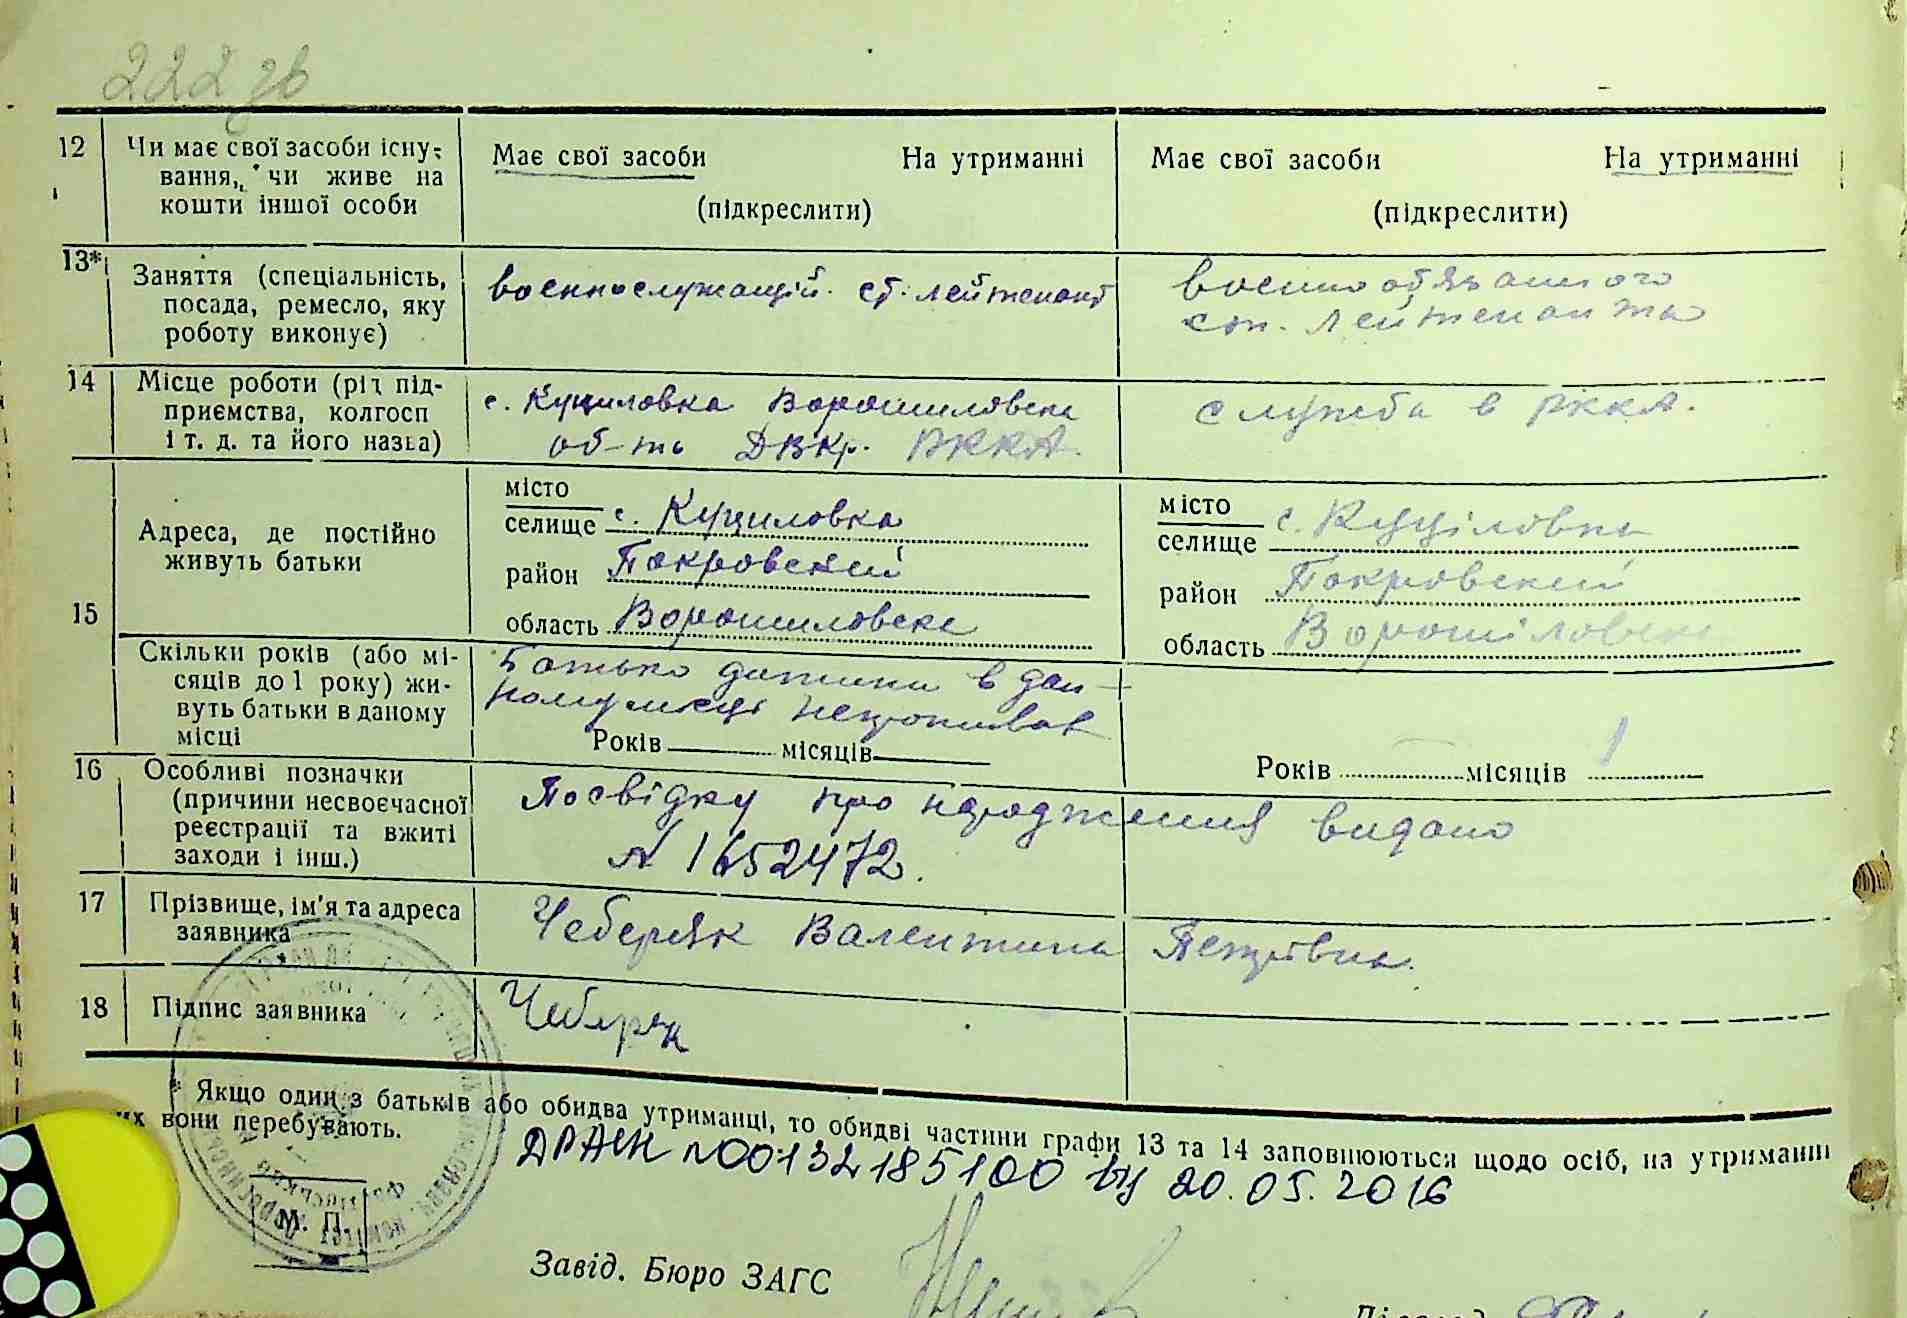 222 зв
12 Чи має свої засоби існу-
вання, чи живе на
кошти іншої особи
Має свої засоби На утриманні
(підкреслити)
Має свої засоби На утриманні
(підкреслити)
13* Заняття (спеціальність,
посада, ремесло, яку
роботу виконує)
военнослужащій ст. лейтенант
военнообязаного
ст. лейтенанта
14 Місце роботи (рід під-
приємства, колгосп
і т. д. та його назва)
с. Куциловка Ворошиловска
об-ть ДВКр. РККА.
служба в РККА.
15 Адреса, де постійно
живуть батьки
місто
селище с. Куциловка
район Покровский
область Ворошиловска
місто
селище с. Куціловка
район Покровский
область Ворошіловска
Скільки років (або мі-
сяців до 1 року) жи-
вуть батьки в даному
місці
Батько дитини в дан-
ному місці непроживав
Років місяців
Років місяців 1
16 Особливі позначки
(причини несвоєчасної
реєстрації та вжиті
заходи і інш.)
Посвідку про народження видано
№ 1652472.
17 Прізвище, ім'я та адреса
заявника
Чеберяк Валентина Петрівна.
18 Підпис заявника
Чеберяк
* Якщо один з батьків або обидва утриманці, то обидві частини графи 13 та 14 заповнюються щодо осіб, на утриманні
их вони перебувають.
ДРАЦС №00132185100 від 20.05.2016
М. П.
Завід. Бюро ЗАГС